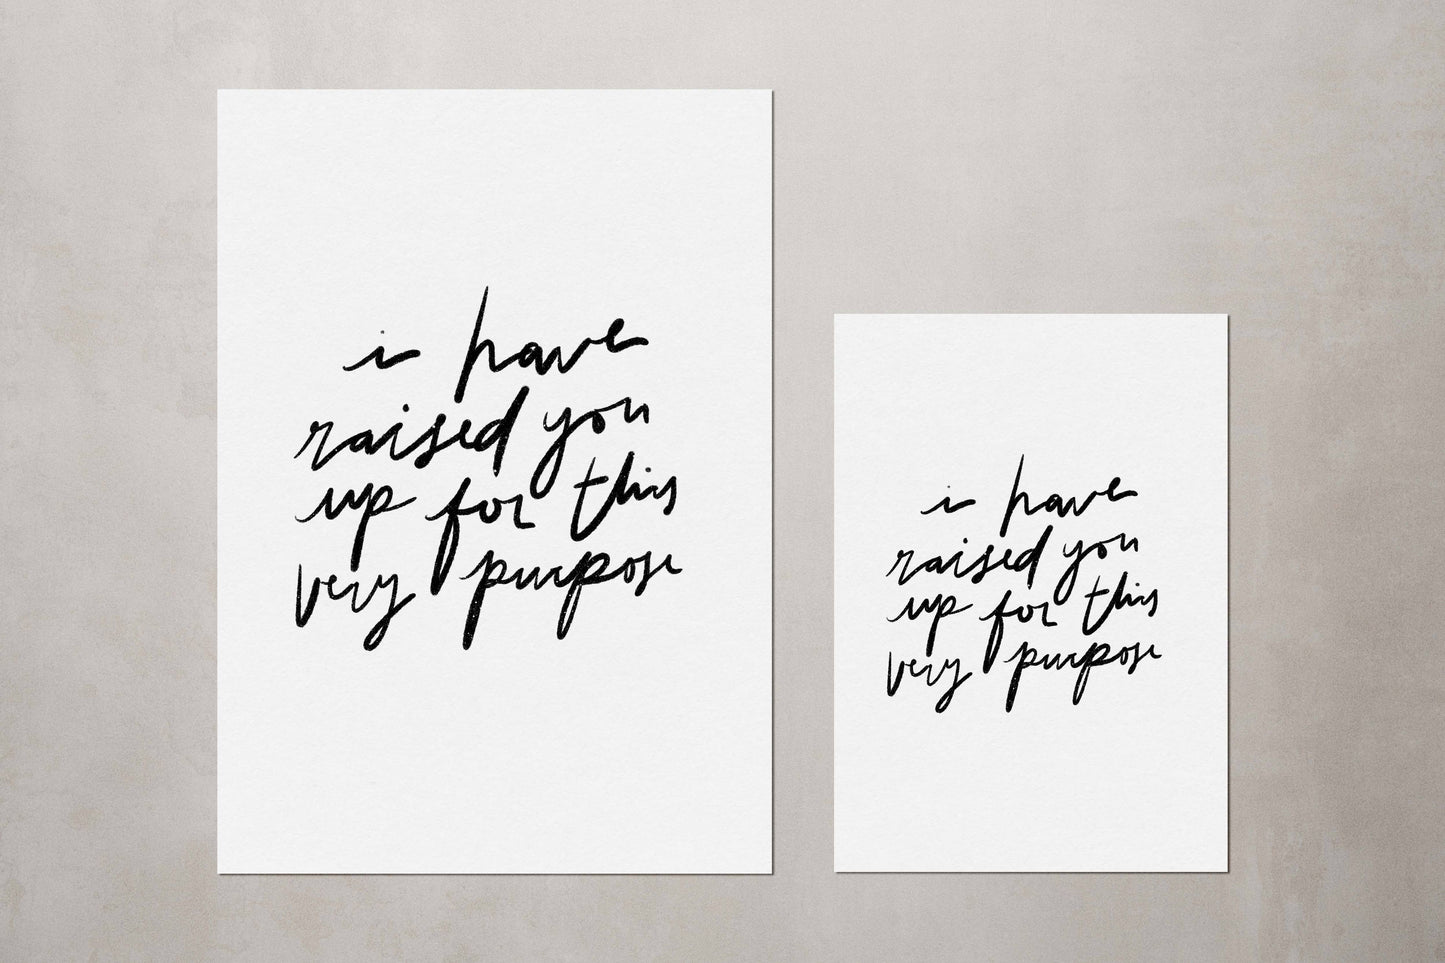 i have
raised you
up for this
very purpose
i have
raised you
up for this
very purpose